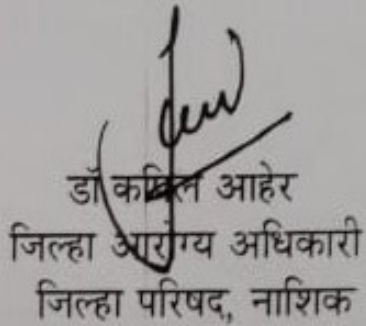 डॉ कपिल आहेर
जिल्हा आरोग्य अधिकारी
जिल्हा परिषद, नाशिक